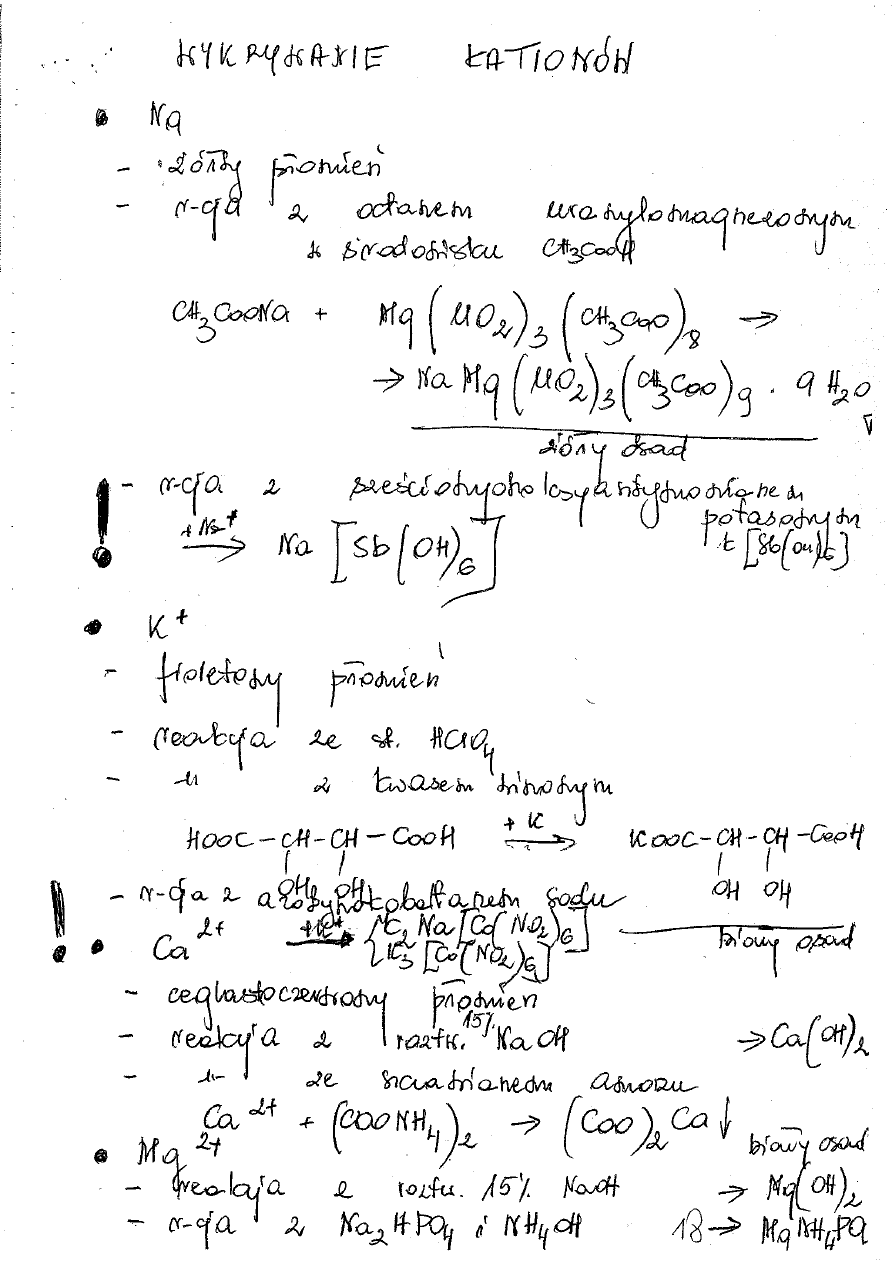 WYKRYWANIE KATIONÓW
• Na
- żółty płomień
- r-cja z octanem uranylomagnezowym
w środowisku CH3COOH
CH3COONa + Mg(UO2)3(CH3COO)8 →
→ NaMg(UO2)3(CH3COO)9 · 9 H2O
żółty osad
! - r-cja z sześciohydroksyantymonianem potasowym
+ Na+ → Na[Sb(OH)6] K[Sb(OH)6]
• K+
- fioletowy płomień
- reakcja ze st. HClO4
- -11- z kwasem winowym
HOOC-CH-CH-COOH + K → KOOC-CH-CH-COOH
OH OH OH OH
biały osad
! - r-cja z azotynokobaltanem sodu
+K+ → { K2Na[Co(NO2)6]
{ K3[Co(NO2)6]
• Ca2+
- ceglastoczerwony płomień
- reakcja z roztw. 15% NaOH → Ca(OH)2
- -11- ze szczawianem amonu
Ca2+ + (COONH4)2 → (COO)2Ca↓
biały osad
• Mg2+
- reakcja z roztw. 15% NaOH → Mg(OH)2
- r-cja z Na2HPO4 i NH4OH 18 → MgNH4PO